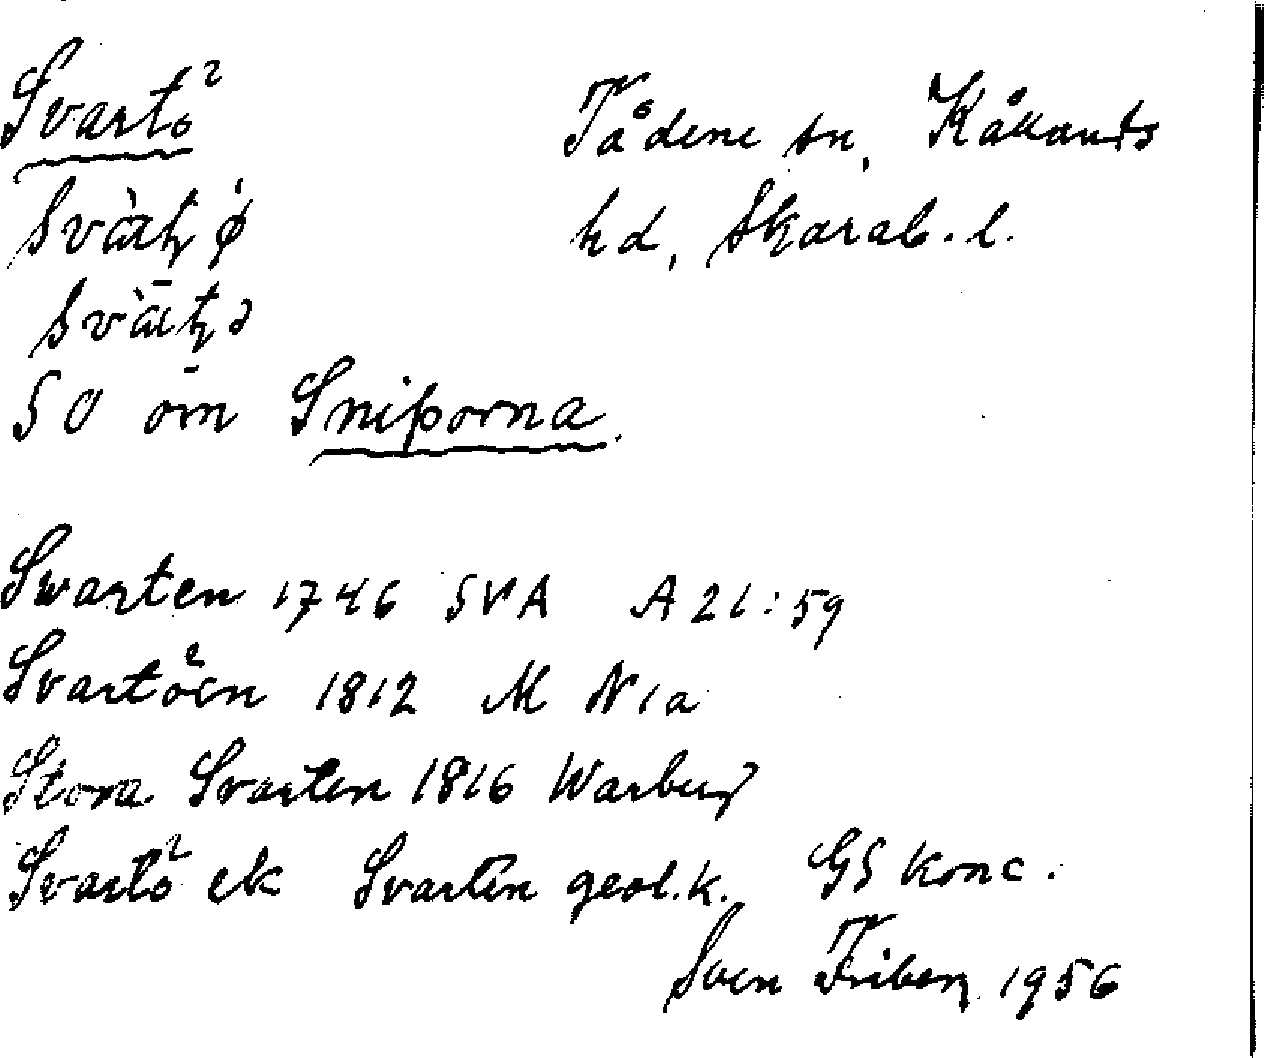 Svartö Tådene sn, Kållands
Svàrtö hd, Skarab. l.
Svàrtə
SO om Sniporna.
Swarten 1746 SVA A 21:59
Svartöen 1812 M N 1a
Stora Svarten 1816 Warburg
Svartö ek Svarten geol.k. GS konc.
Sven Friberg 1956